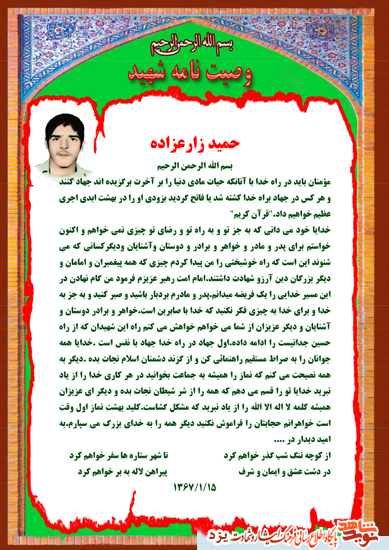 بسم الله الرحمن الرحیم
وصیت نامه شهید
حمید زارعزاده
بسم الله الرحمن الرحیم
مؤمنان باید در راه خدا با آنانکه حیات مادی دنیا را بر آخرت برگزیده اند جهاد کنند
و هر کس در جهاد براه خدا کشته شد یا فاتح گردید بزودی او را در بهشت ابدی اجری
عظیم خواهیم داد."قرآن کریم"
خدایا خود می دانی که به جز تو و به راه تو و رضای تو چیزی نمی خواهم و اکنون
خواستم برای پدر و مادر و خواهر و برادر و دوستان وآشنایان ودیگرکسانی که می
شنوند این است که راه خوشبختی را من پیدا کردم چیزی که همه پیغمبران و امامان و
دیگر بزرگان دین آرزو شهادت داشتند.امام امت رهبر عزیزم فرمود من گام نهادن در
این مسیر خدایی را یک فریضه میدانم.پدر و مادرم بردبار باشید و صبر کنید و به جز به
خدا و برای خدا به چیزی فکر نکنید که خدا با صابرین است.خواهر و برادر دوستان و
آشنایان و دیگر عزیزان از شما می خواهم خواهش می کنم راه این شهیدان که از راه
حسین جدانیست را ادامه داده.اول جهاد در راه خدا جهاد با نفس است .خدایا همه
جوانان را به صراط مستقیم راهنمائی کن و از گزند دشمنان اسلام نجات بده .دیگر به
همه نصیحت می کنم که نماز را همیشه به جماعت بخوانید در هر کاری خدا را از یاد
نبرید خدایا تو را قسم می دهم که همه را از شر شیطان نجات بده و دیگر ای عزیزان
همیشه کلمه لا اله الا الله را از یاد نبرید که مشکل گشاست.کلید بهشت نماز اول وقت
است خواهرانم حجابتان را فراموش نکنید دیگر همه را به خدای بزرگ می سپارم.به
امید دیدار در ....
از کوچه تنگ شب گذر خواهم کرد تا شهر ستاره ها سفر خواهم کرد
در دشت عشق و ایمان و شرف پیراهن لاله به بر خواهم کرد
۱۳۶۷/۱/۱۵
نوید شاهد
یزد